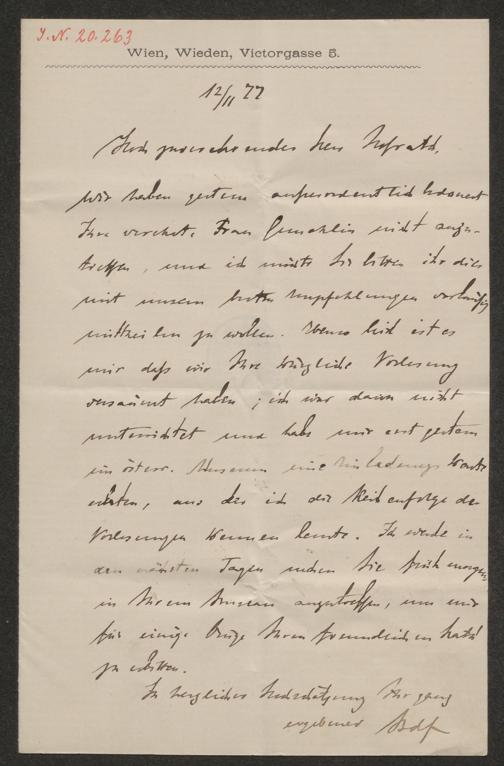 J. N. 20.263
Wien, Wieden, Victorgasse 5.
12/11 77
Hoch zuverehrender Herr Hofrath,
Wir haben gestern außerordentlich bedauert
Ihre verehrte Frau Gemahlin nicht anzu-
treffen, und ich möchte Sie bitten ihr dies
mit unsern besten Empfehlungen vorläufig
mittheilen zu wollen. Ebenso leid ist es
mir daß wir Ihre Vorlesung
versäumt haben; ich war davon nicht
unterrichtet und habe mir erst gestern
im österr. Museum eine Einladungs Karte
erbeten, aus der ich die Reihenfolge der
Vorlesungen kennen lernte. Ich werde in
den nächsten Tagen suchen Sie früh morgens
in Ihrem Bureau anzutreffen, um mir
für einige Dinge Ihren freundlichen Rath
zu erbitten.
In herzlicher Hochschätzung Ihr ganz
ergebener